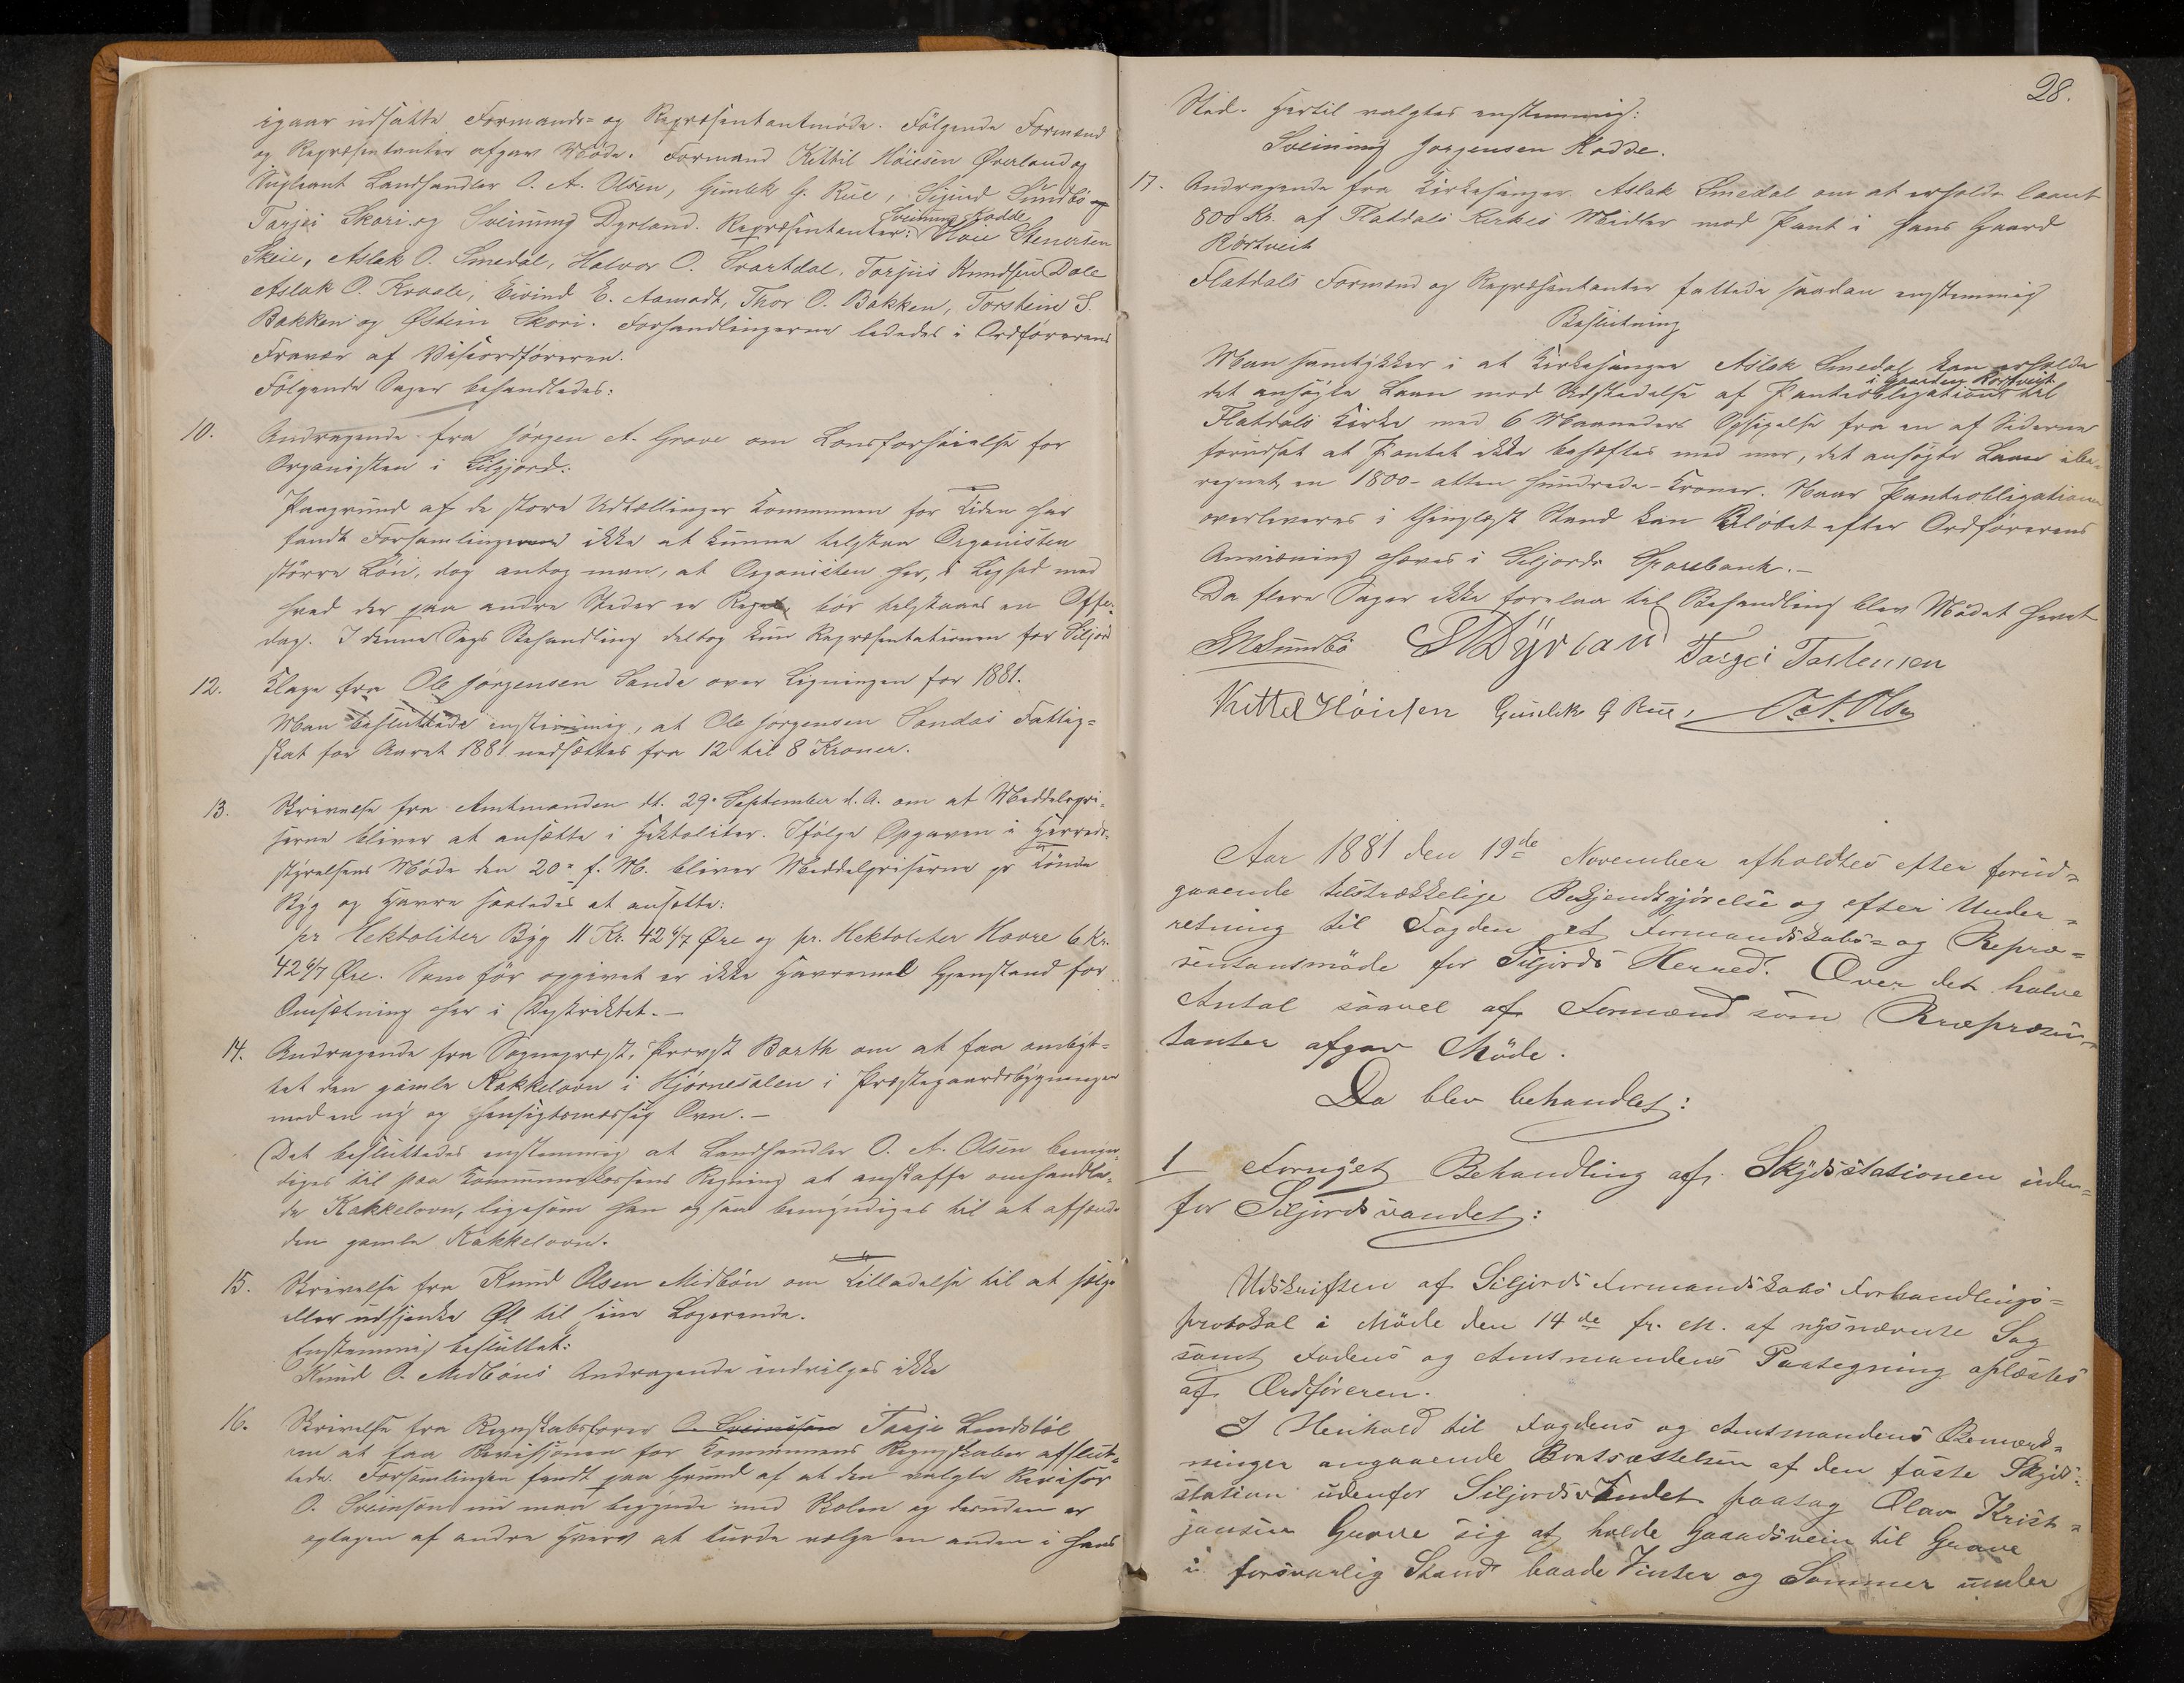 igaar udsatte Formands- og Repræsentantmöde. Fölgende Formænd
og Repræsentanter afgav Möde. Formænd Kittil Höiesen Øverland og
Supleant Landhandler O. A. Olsen, Gunlek G. Rue, Sigurd Sundbö og
Tarjei Skori og Sveinung Dyrland. Repræsentanter: Sveinung Kodde Höie Stenersen
Skeie, Aslak O. Smedal, Halvor O. Svartdal, Torjus Knudsen Dale
Aslak O. Kvaale, Eivind E. Aamodt, Thor O. Bakken, Torstein S.
Bakken og Østein Skori. Forhandlingerne lededes i Ordförerens
Fravær af Viseordföreren.
Fölgende Sager behandledes:
10. Andragende fra Jörgen A. Grave om Lonsforhöielse for
Organisten i Siljord:
Paagrund af de store Udtællinger Kommunen for Tiden har
fandt Forsamlingen ikke at kunne tilstaa Organisten
större Lön, dog antog man, at Organisten her, i Lighed med
hvad der paa andre Steder er Regel, bör tilstaaes en Offer-
dag. I denne Sags Behandling deltog kun Repræsentationen for Siljord
12. Klage fra Ole Jörgensen Sanda over Ligningen for 1881.
Man besluttede enstemmig, at Ole Jörgensen Sandas Fattig-
skat for Aaret 1881 nedsættes fra 12 til 8 Kroner.
13. Skrivelse fra Amtmanden dt. 29. September d. A. om at Middelpri-
serne bliver at ansætte i Hektoliter. Ifölge Opgaven i Herreds-
styrelsens Möde den 20. f. M. bliver Middelpriserne pr Tönde
Byg og Havre saaledes at ansætte:
pr Hektoliter Byg 11 Kr. 42 6/7 Øre og pr. Hektoliter Havre 6 Kr.
42 6/7 Øre. Som för opgivet er ikke Havremel Gjenstand for
Omsætning her i Distriktet. —
14. Andragende fra Sognepræst, Provst Barth om at faa ombyt-
tet den gamle Kakkelovn i Hjörnesalen i Præstegaardsbygningen
med en ny og hensigtsmæssig Ovn. —
Det besluttedes enstemmig at Landhandler O. A. Olsen bemyn-
diges til paa Kommunekassens Regning at anskaffe omhandle-
de Kakkelovn, ligesom han ogsaa bemyndiges til at afhænde
den gamle Kakkelovn.
15. Skrivelse fra Knud Olsen Midbön om Tilladelse til at sælge
eller udskjenke Øl til sine Logerende.
Enstemmig besluttet:
Knud O. Midböns Andragende indvilges ikke
16. Skrivelse fra Regnskabsförer O. Sveinsson Tarje Lundstöl
om at faa Revisionen for Kommunens Regnskaber afslut-
tede. Forsamlingen fandt paa Grund af at den valgte Revisor
O. Sveinson nu maa begynde med Skolen og desuden er
optagen af andre Hverv at burde vælge en anden i hans
28.
Sted. Hertil valgtes enstemmig:
Sveinung Jorgensen Kodde.
17. Andragende fra Kirkesanger Aslak Smedal om at erholde laant
800 Kr. af Flatdals Kirkes Midler mod Pant i hans Gaard
Rörtveit
Flatdals Formænd og Repræsentanter fattede saadan enstemmig
Beslutning
Man samtykker i at Kirkesanger Aslak Smedal kan erholde
det ansögte Laan mod Udstedelse af Panteobligation i Gaarden Rörtveit til
Flatdals Kirke med 6 Maaneders Opsigelse fra en af Siderne
forudsat at Pantet ikke behæftes med mer, det ansögte Laan ibe-
regnet, en 1800 - atten hundrede - Kroner. Naar Panteobligationen
overleveres i thinglæst Stand kan Belöbet efter Ordförerens
Anvisning hæves i Siljords Sparebank. —
Da flere Sager ikke forelaa til Behandling blev Mödet hævet
SMSundbö S Dÿrland Targei Tarlensen
Kittel Höiesen Gunlek G Rue, O. A. Olsen
Aar 1881 den 19de November afholdtes efter forud-
gaaende tilstrækkelige Bekjendtgjörelse og efter Under-
retning til Fogden et Formandskabs- og Repræ-
sentantmöde for Siljords Herred. Over det halve
Antal saavel af Formænd som Repræsen-
tanter afgav Möde.
Da blev behandlet:
1 Fornyet Behandling af Skydsstationen uden-
for Siljordsvandet:
Udskriften af Siljords Formandskabs Forhandlings-
protokol i Möde den 14de fr. M. af nysnævnte Sag
samt Fodens og Amtmandens Paategning oplæstes
af Ordföreren.
I Henhold til Fogdens og Amtmandens Bemærk-
ninger angaaende Bortsættelsen af den faste Skyds-
station udenfor Siljordsvandet paatog Olav Krist-
jansen Grave sig at holde Gaardsvein til Grave
i forsvarlig Stand baade Vinter og Sommer under